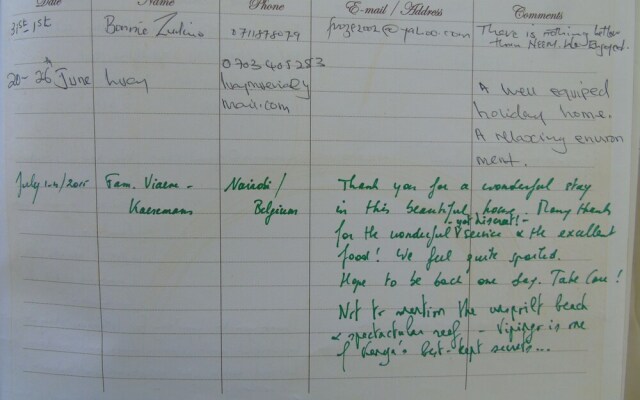 Date Name Phone E-mail / Address Comments
31st 1st Bonnie 0711878079 @yahoo.com There is nothing better
than Neem. We Enjoyed.
20-26 June Lucy 0703405253 A well equiped
mail.com holiday home.
A relaxing environ
ment.
July 1-4/2015 Fam. Viaene- Nairobi/ Thank you for a wonderful stay
Kaesemans Belgium in this beautiful house. Many thanks
- yet discreet! -
for the wonderful service & the excellent
food! We feel quite spoiled.
Hope to be back one day. Take Care!
Not to mention the unspoilt beach
& spectacular reef - Vipingo is one
of Kenya's best-kept secrets...